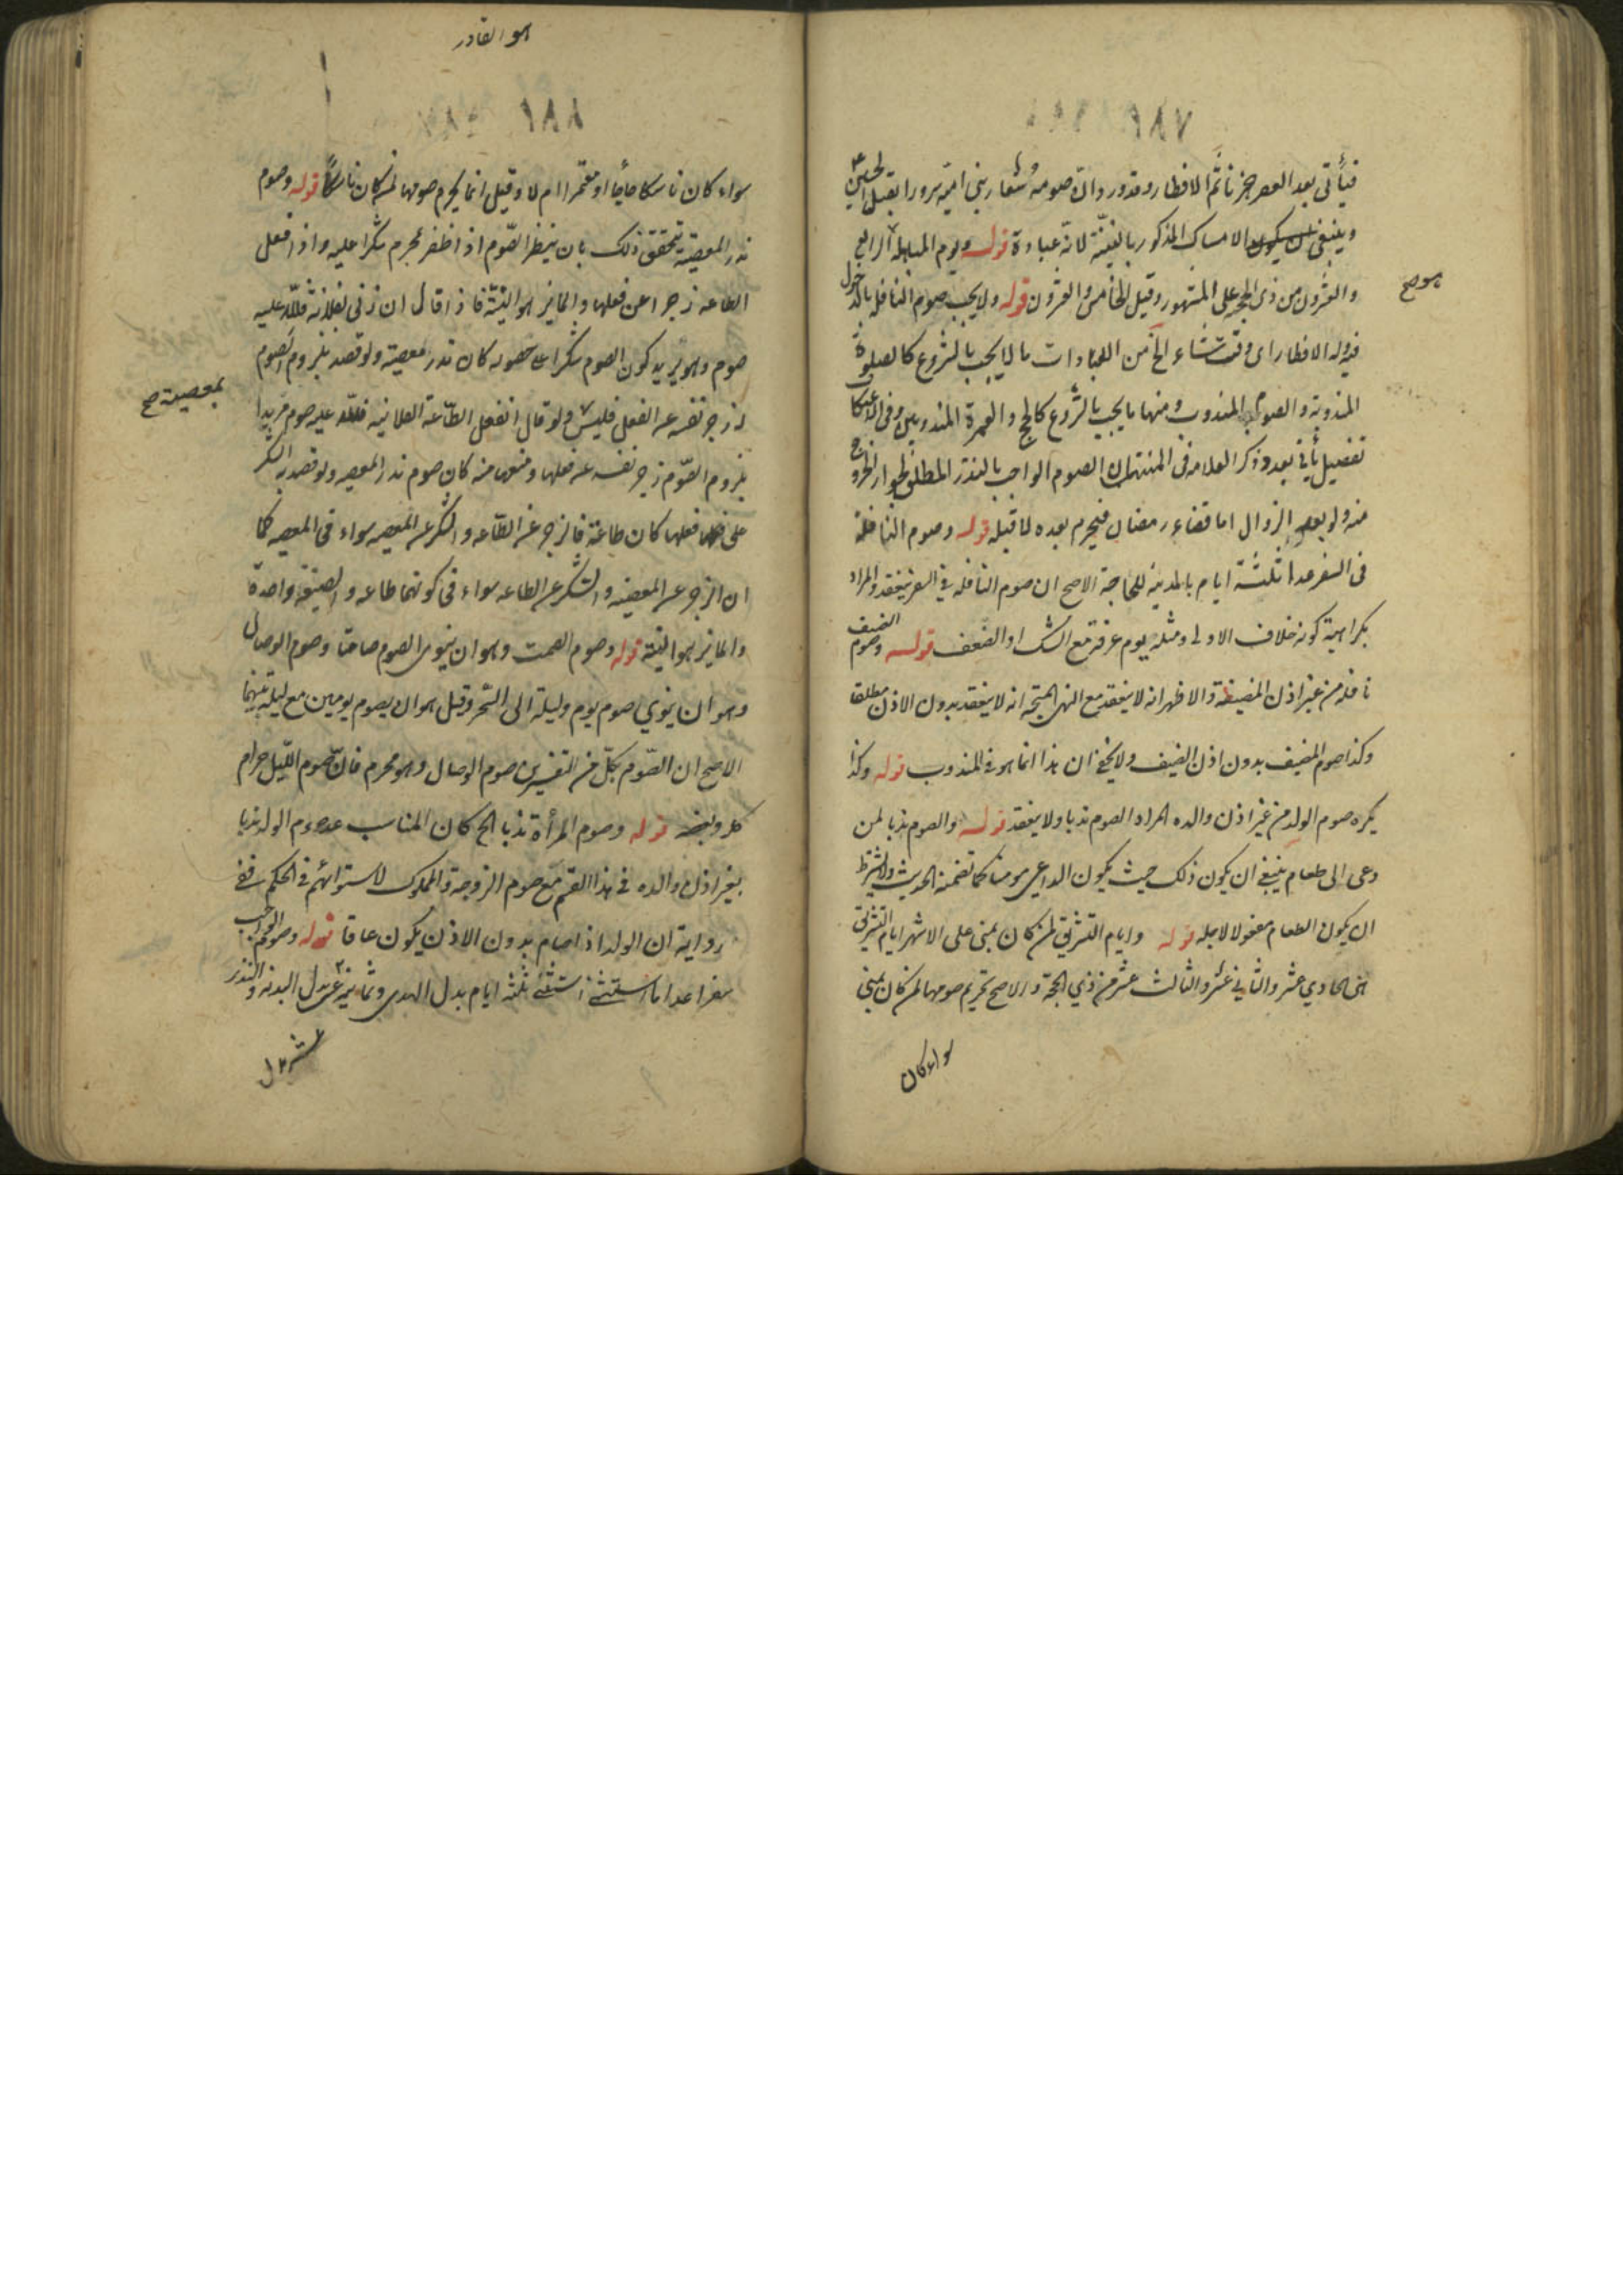 فيأتي بعد العصر حينئذ ثم الافطار وقد ورد ان صومه شعار بني امية سرورا بقتل الحسين ع
وينبغي ان يكون الامساك المذكور بالنية لانه عبادة قوله ويوم المباهلة الرابع
والعشرون من ذي الحجة على المشهور وقيل الخامس والعشرون قوله ولا يجب صوم النافلة بالدخول
هو صح
فيه وله الافطار اى وقت شاء الخ من العبادات ما لا يجب بالشروع كالصلوة
المندوبة والصوم المندوب ومنها ما يجب بالشروع كالحج والعمرة المندوبين وفى الاعتكاف
تفصيل يأتي بعد وذكر العلامة فى المنتهى ان الصوم الواجب بالنذر المطلق يجوز الخروج
منه ولو بعد الزوال اما قضاء رمضان فيحرم بعده لا قبله قوله وصوم النافلة
فى السفر عدا ثلثة ايام بالمدينة للحاجة الاصح ان صوم النافلة في السفر ينعقد والمراد
بكراهية كونه خلاف الاولى ومثله يوم عرفة مع الشك او الضعف قوله وصوم الضيف
نافلة من غير اذن المضيف والاظهر انه لا ينعقد مع النهى المتجه انه لا ينعقد بدون الاذن مطلقا
وكذا صوم المضيف بدون اذن الضيف ولا يخفى ان هذا انما هو في المندوب قوله وكذا
يكره صوم الولد من غير اذن والده المراد الصوم ندبا ولا ينعقد قوله والصوم ندبا لمن
دعى الى طعام ينبغي ان يكون ذلك حيث يكون الداعي مومنا كما تضمنه الحديث ولا يشترط
ان يكون الطعام معمولا لاجله قوله وايام التشريق لمن كان بمنى على الاشهر ايام التشريق
هى الحادي عشر والثاني عشر والثالث عشر من ذي الحجة والاصح تحريم صومها لمن كان بمنى
سواء كان
هو القادر
سواء كان ناسكا حاجا او معتمرا ام لا وقيل انما يحرم صومها لمن كان ناسكا قوله وصوم
نذر المعصية يتحقق ذلك بان ينذر الصوم اذا ظفر بمحرم شكرا عليه واذا فعل
الطاعه زجرا عن فعلها والمايز هو النية فاذا قال ان زنى بفلانة فلله عليه
صوم وهو يريد كون الصوم شكرا على حصوله كان نذر معصية ولو قصد بلزوم الصوم
له زجر نفسه عن الفعل فليس ولو قال ان فعل الطاعة الفلانيه فلله عليه صوم مريدا
بمعصية صح
بلزوم الصوم زجر نفسه عن فعلها ومنعها منه كان صوم نذر المعصيه ولو قصد به الشكر
على فعلها كان طاعة فالزجر عن الطاعه والشكر على المعصيه سواء فى المعصيه كما
ان الزجر عن المعصية والشكر على الطاعه سواء فى كونهما طاعه والصيغة واحدة
والمايز هو النية قوله وصوم الصمت وهو ان ينوى الصوم صامتا وصوم الوصال
وهو ان ينوي صوم يوم وليلة الى السحر وقيل هو ان يصوم يومين مع ليلة بينهما
الاصح ان الصوم بكل من التفسيرين صوم الوصال وهو محرم فان صوم الليل حرام
كله وبعضه قوله وصوم المرأة ندبا الخ كان المناسب عد صوم الولد ندبا
بغير اذن والده في هذا القسم مع صوم الزوجة والمملوك لاستوائهم في الحكم ففي
رواية ان الولد اذا صام بدون الاذن يكون عاقا قوله وصوم الواجب
سفرا عدا ما استثنى استثنى ثلثة ايام بدل الهدى وثمانية عشر بدل البدنه والنذر